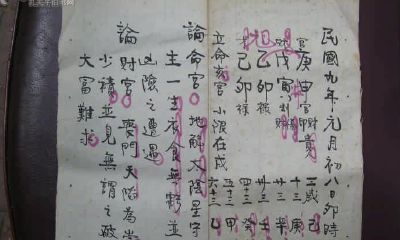 民國九年元月初八日卯時
官庚申官印財貴
財戊寅
乙己卯祿
己卯祿
二歲己
十三庚
廿三辛
卅三壬
四十三癸
五十三甲
六十三乙
立命亥宮小限在戌
論命宮地解太陰星守
主一生衣食無虧並
凶險之遭遇
論財宮喪門天
少積並見無謂之破
大富難求